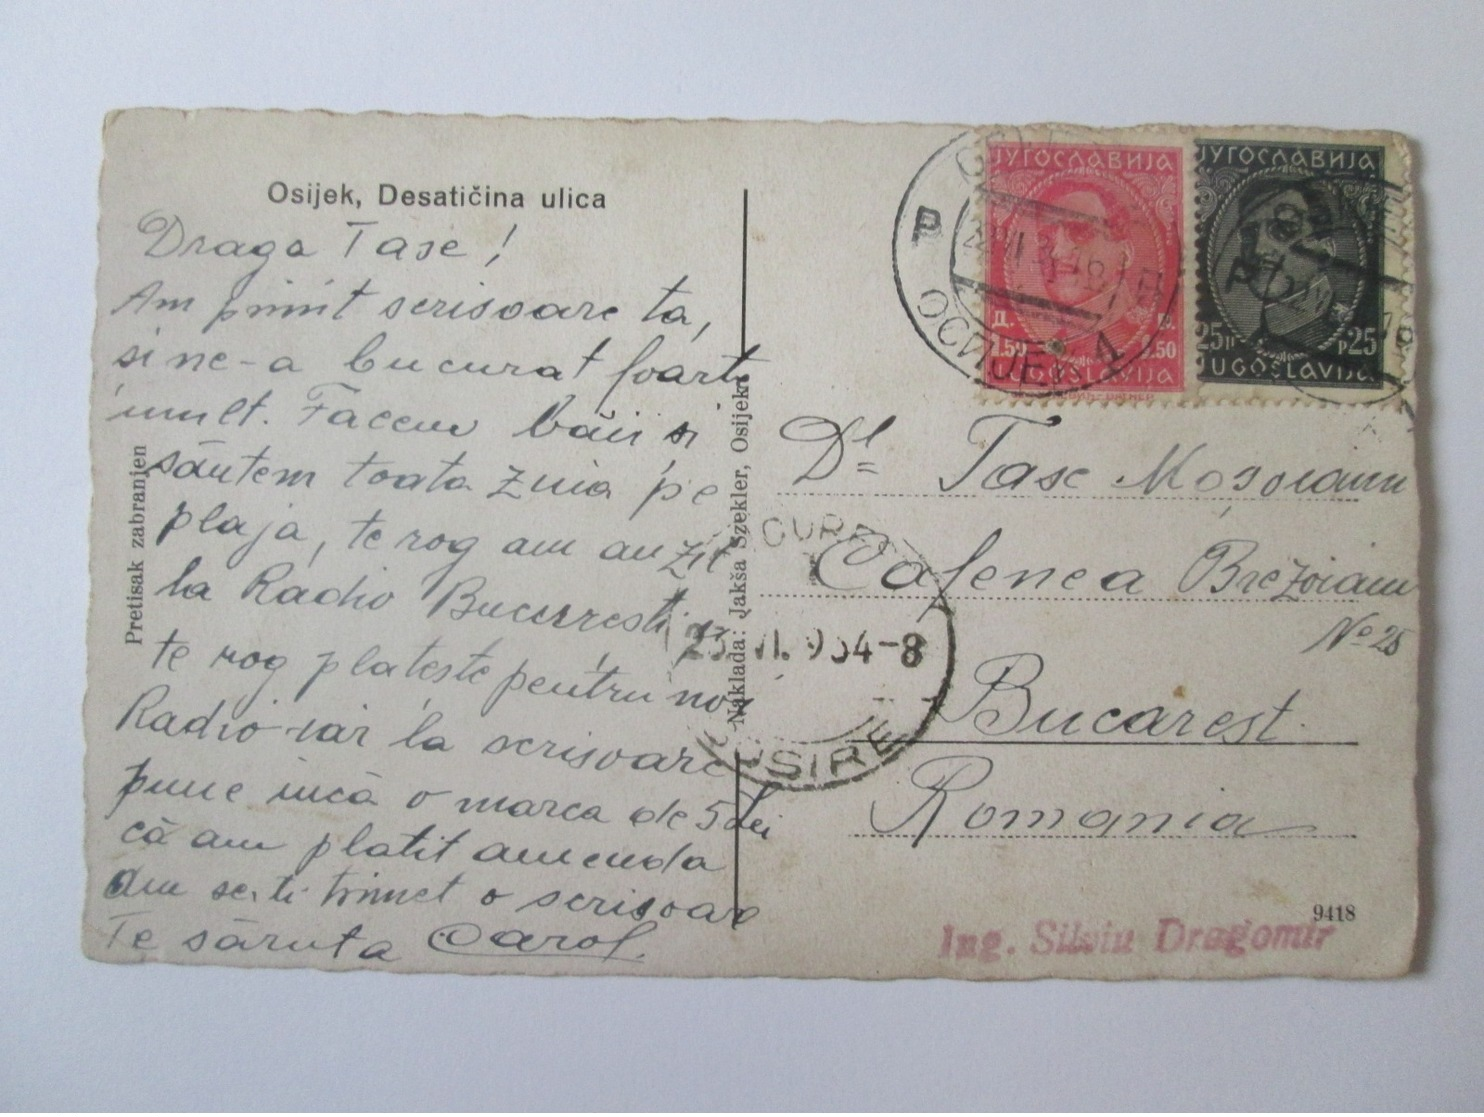 Osijek, Desatičina ulica
Draga Tase!
Am primit scrisoare ta,
si ne-a bucurat foarte
mult. Facem băii si
sântem toata ziua pe
plaja, te rog am auzit
la Radio Bucuresti
te rog plateste pentru noi
Radio iar la scrisoare
pune incă o marca de 5 Lei
că am platit amenda
Am se-ti trimet o scrisoare
Te săruta Carol.
Pretisak zabranjen
Naklada: Jakša Szekler, Osijek
ЈУГОСЛАВИЈА
Д. 1.50
1.50
JUGOSLAVIJA
ЈУГОСЛАВИЈА
25п
p25
JUGOSLAVIJA
P
ОСИЈЕК 4
Dl Tase Mosoianu
Cafenea Brezoianu
No 25
Bucarest.
Romania
23.VI.934-8
SOSIRE
9418
Ing. Silviu Dragomir